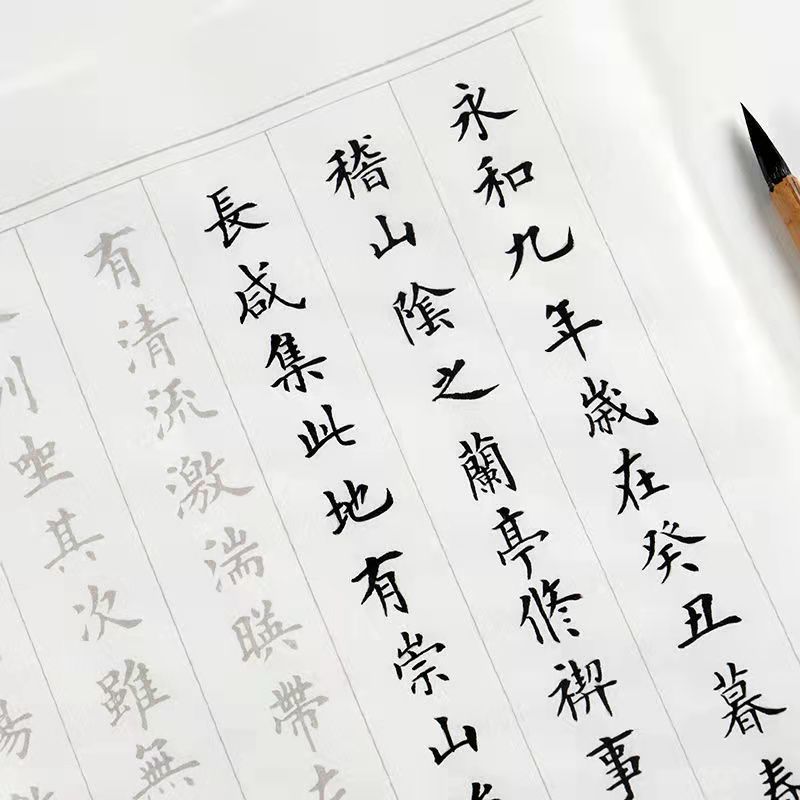 永和九年歲在癸丑暮春
稽山陰之蘭亭修禊事
長咸集此地有崇山
有清流激湍暎帶左
列坐其次雖無